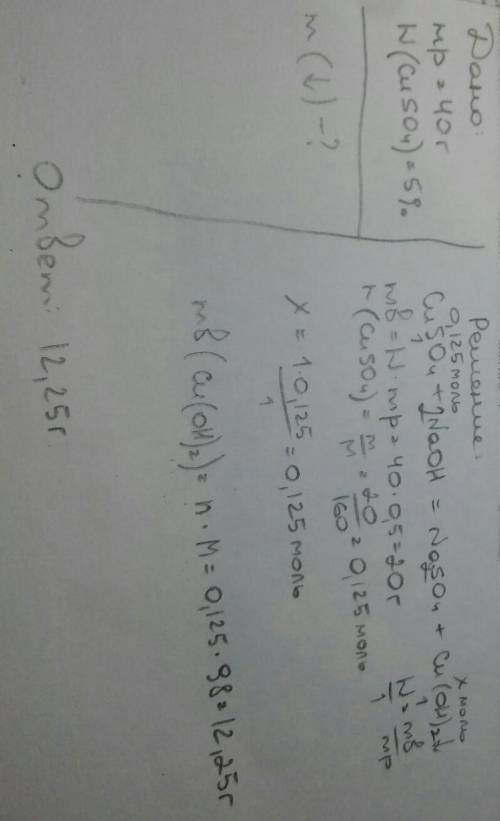 Дано:
mр = 40г
W(CuSO₄) = 5%
m(↓) - ?
Решение:
0,125моль x моль
CuSO₄ + 2NaOH = Na₂SO₄ + Cu(OH)₂↓
1 1
mв = W · mр = 40 · 0,5 = 20г W = mв / mр
n(CuSO₄) = m/M = 20/160 = 0,125моль
X = 1·0,125/1 = 0,125моль
mв(Cu(OH)₂) = n · M = 0,125 · 98 = 12,25г
Ответ: 12,25г